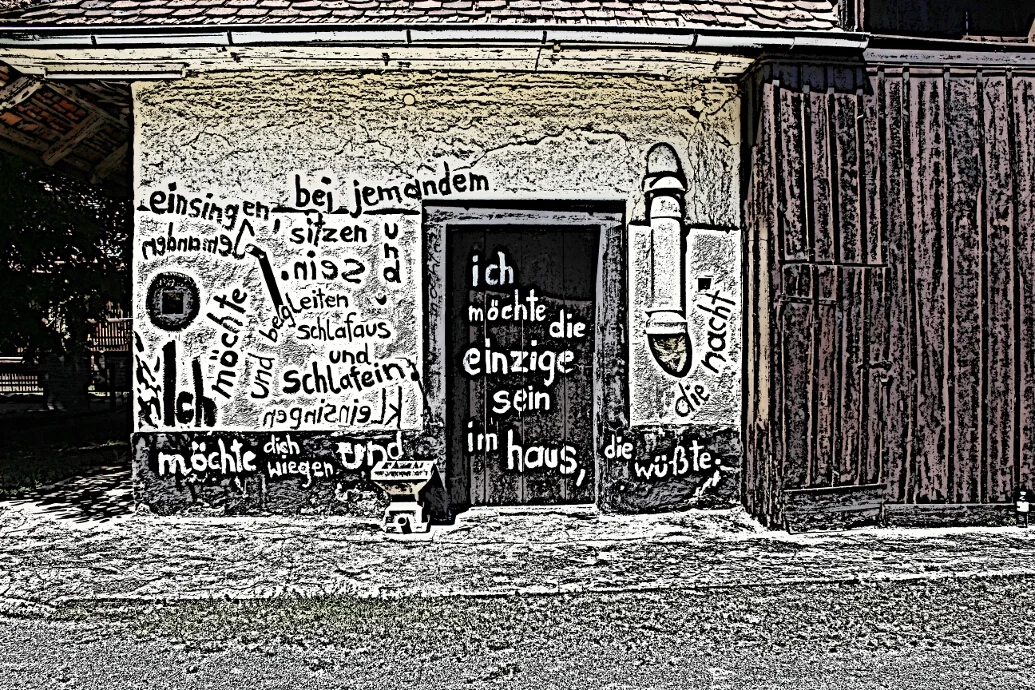 einsingen, bei jemandem
jemanden
sitzen und
sein.
ich möchte
begleiten
schlafaus
und
und schlafein
kleinsingen
möchte dich
wiegen und
ich
möchte
die
einzige
sein
im
haus,
die
wüßte:
die nacht